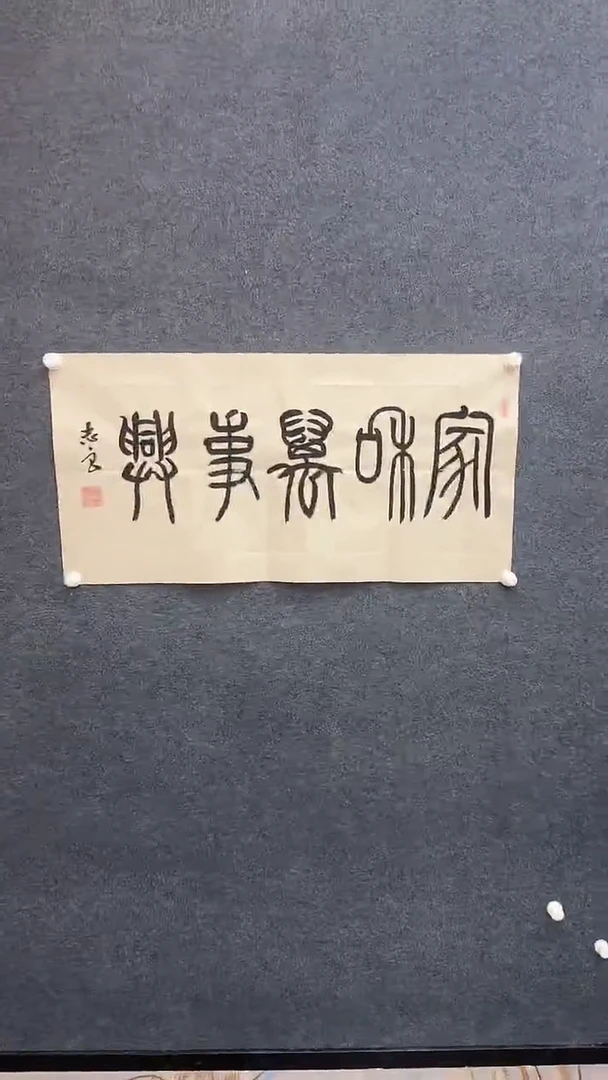 家和萬事興
志良